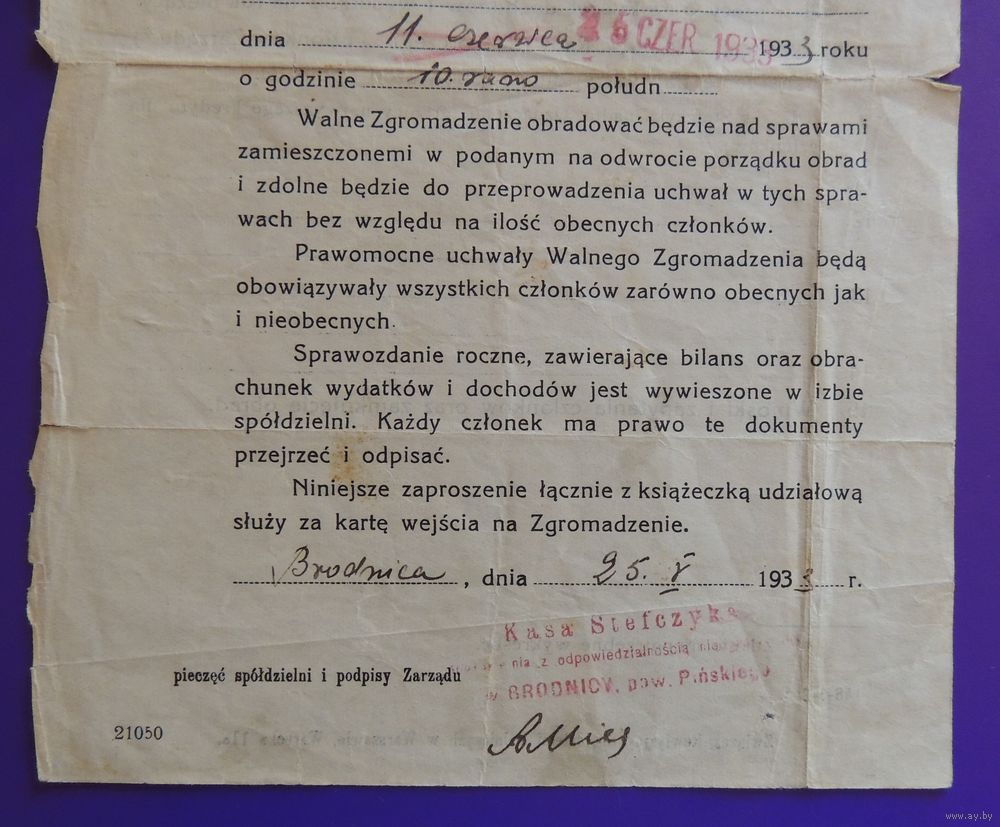 dnia 11. czerwca 25 CZER 1933 1933 roku
o godzinie 10. rano połudn
Walne Zgromadzenie obradować będzie nad sprawami
zamieszczonemi w podanym na odwrocie porządku obrad
i zdolne będzie do przeprowadzenia uchwał w tych spra-
wach bez względu na ilość obecnych członków.
Prawomocne uchwały Walnego Zgromadzenia będą
obowiązywały wszystkich członków zarówno obecnych jak
i nieobecnych.
Sprawozdanie roczne, zawierające bilans oraz obra-
chunek wydatków i dochodów jest wywieszone w izbie
spółdzielni. Każdy członek ma prawo te dokumenty
przejrzeć i odpisać.
Niniejsze zaproszenie łącznie z książeczką udziałową
służy za kartę wejścia na Zgromadzenie.
Brodnica, dnia 25. V 1933 r.
Kasa Stefczyka
z odpowiedzialnością
w BRODNICY, pow. Pińskiego
pieczęć spółdzielni i podpisy Zarządu
21050
www.ay.by